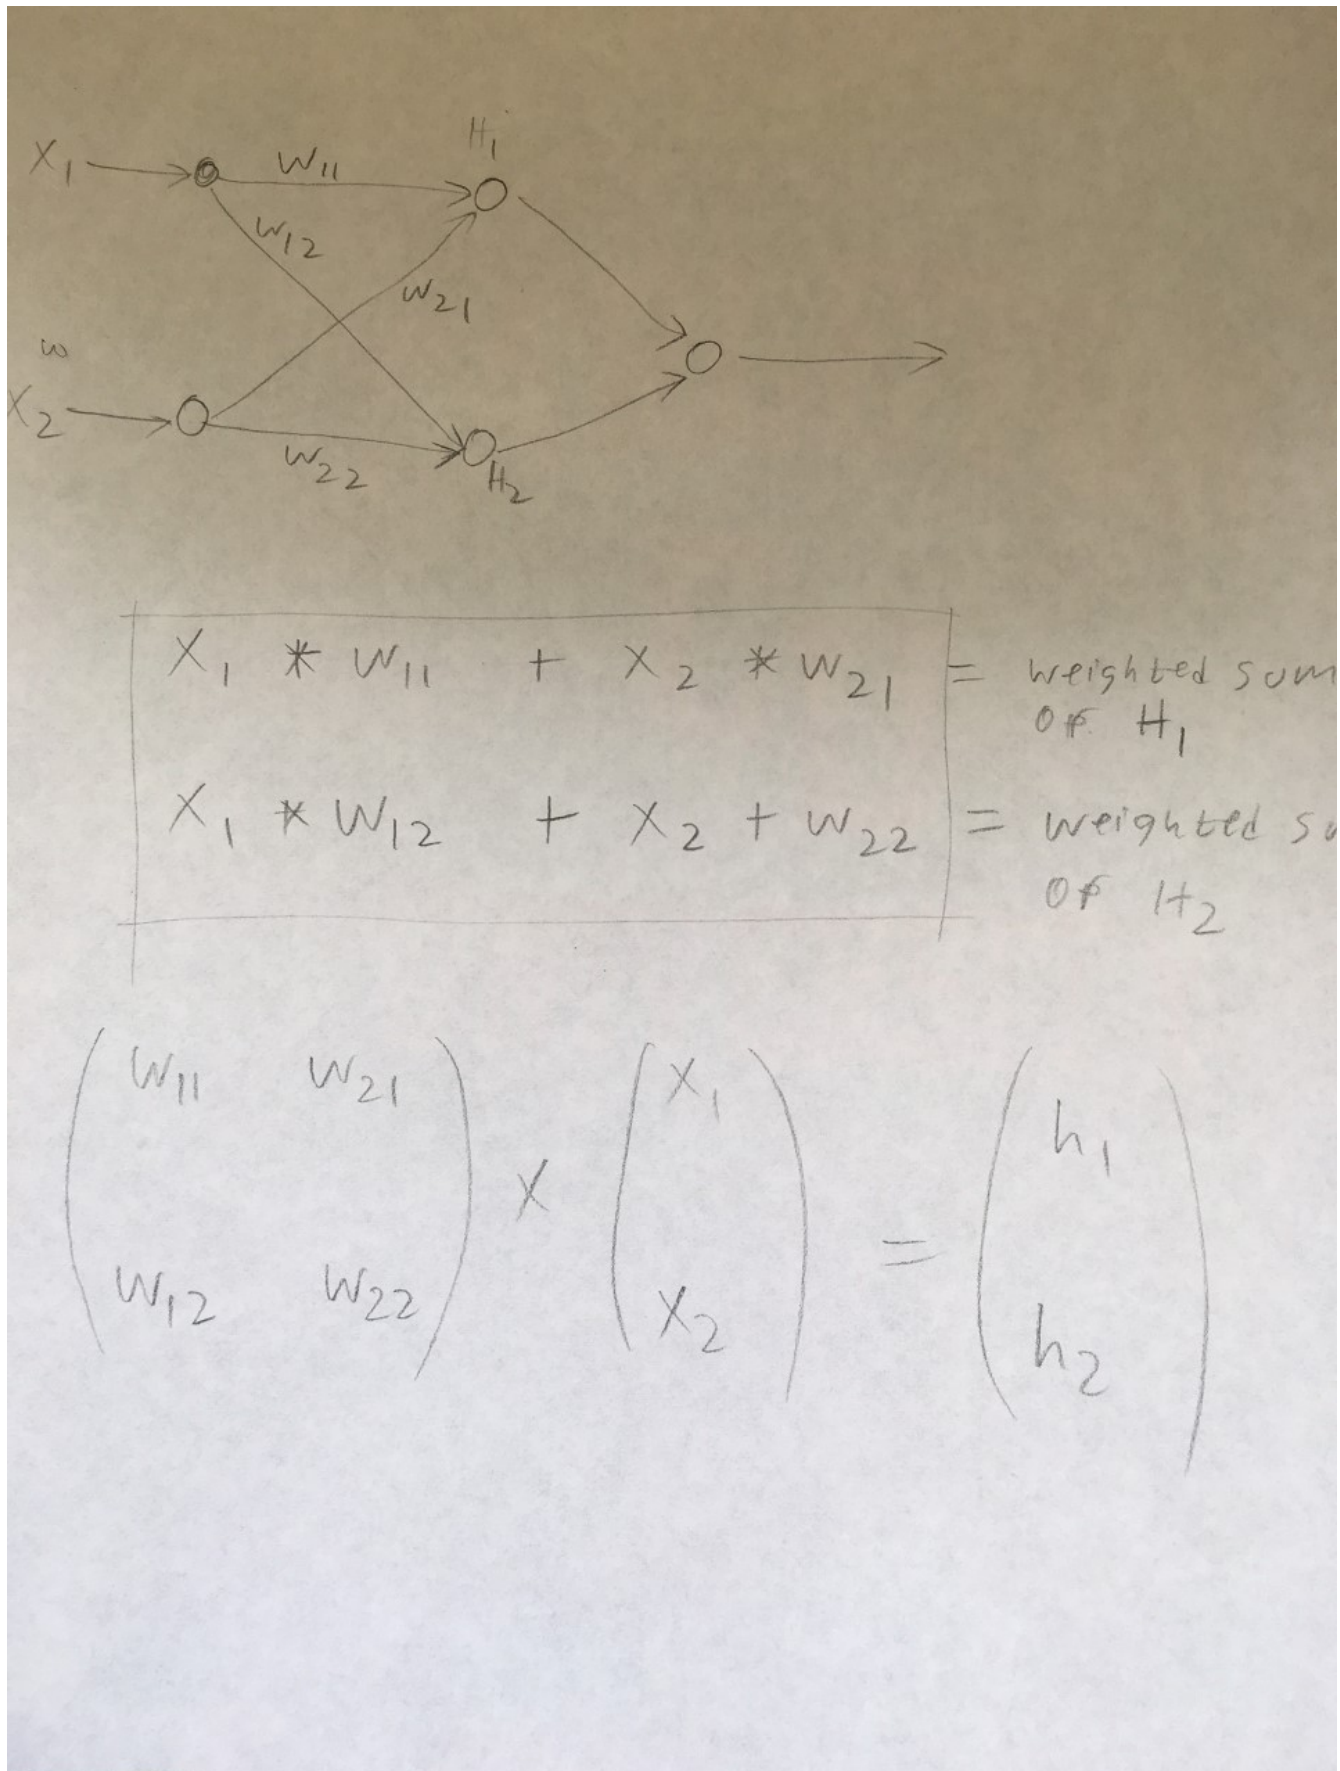 H1
X1 W11
W12
W21
w
X2
W22
H2
X1 * W11 + X2 * W21 = weighted sum
of H1
X1 * W12 + X2 + W22 = weighted
of H2
W11 W21 X1
h1
X =
W12 W22 X2
h2